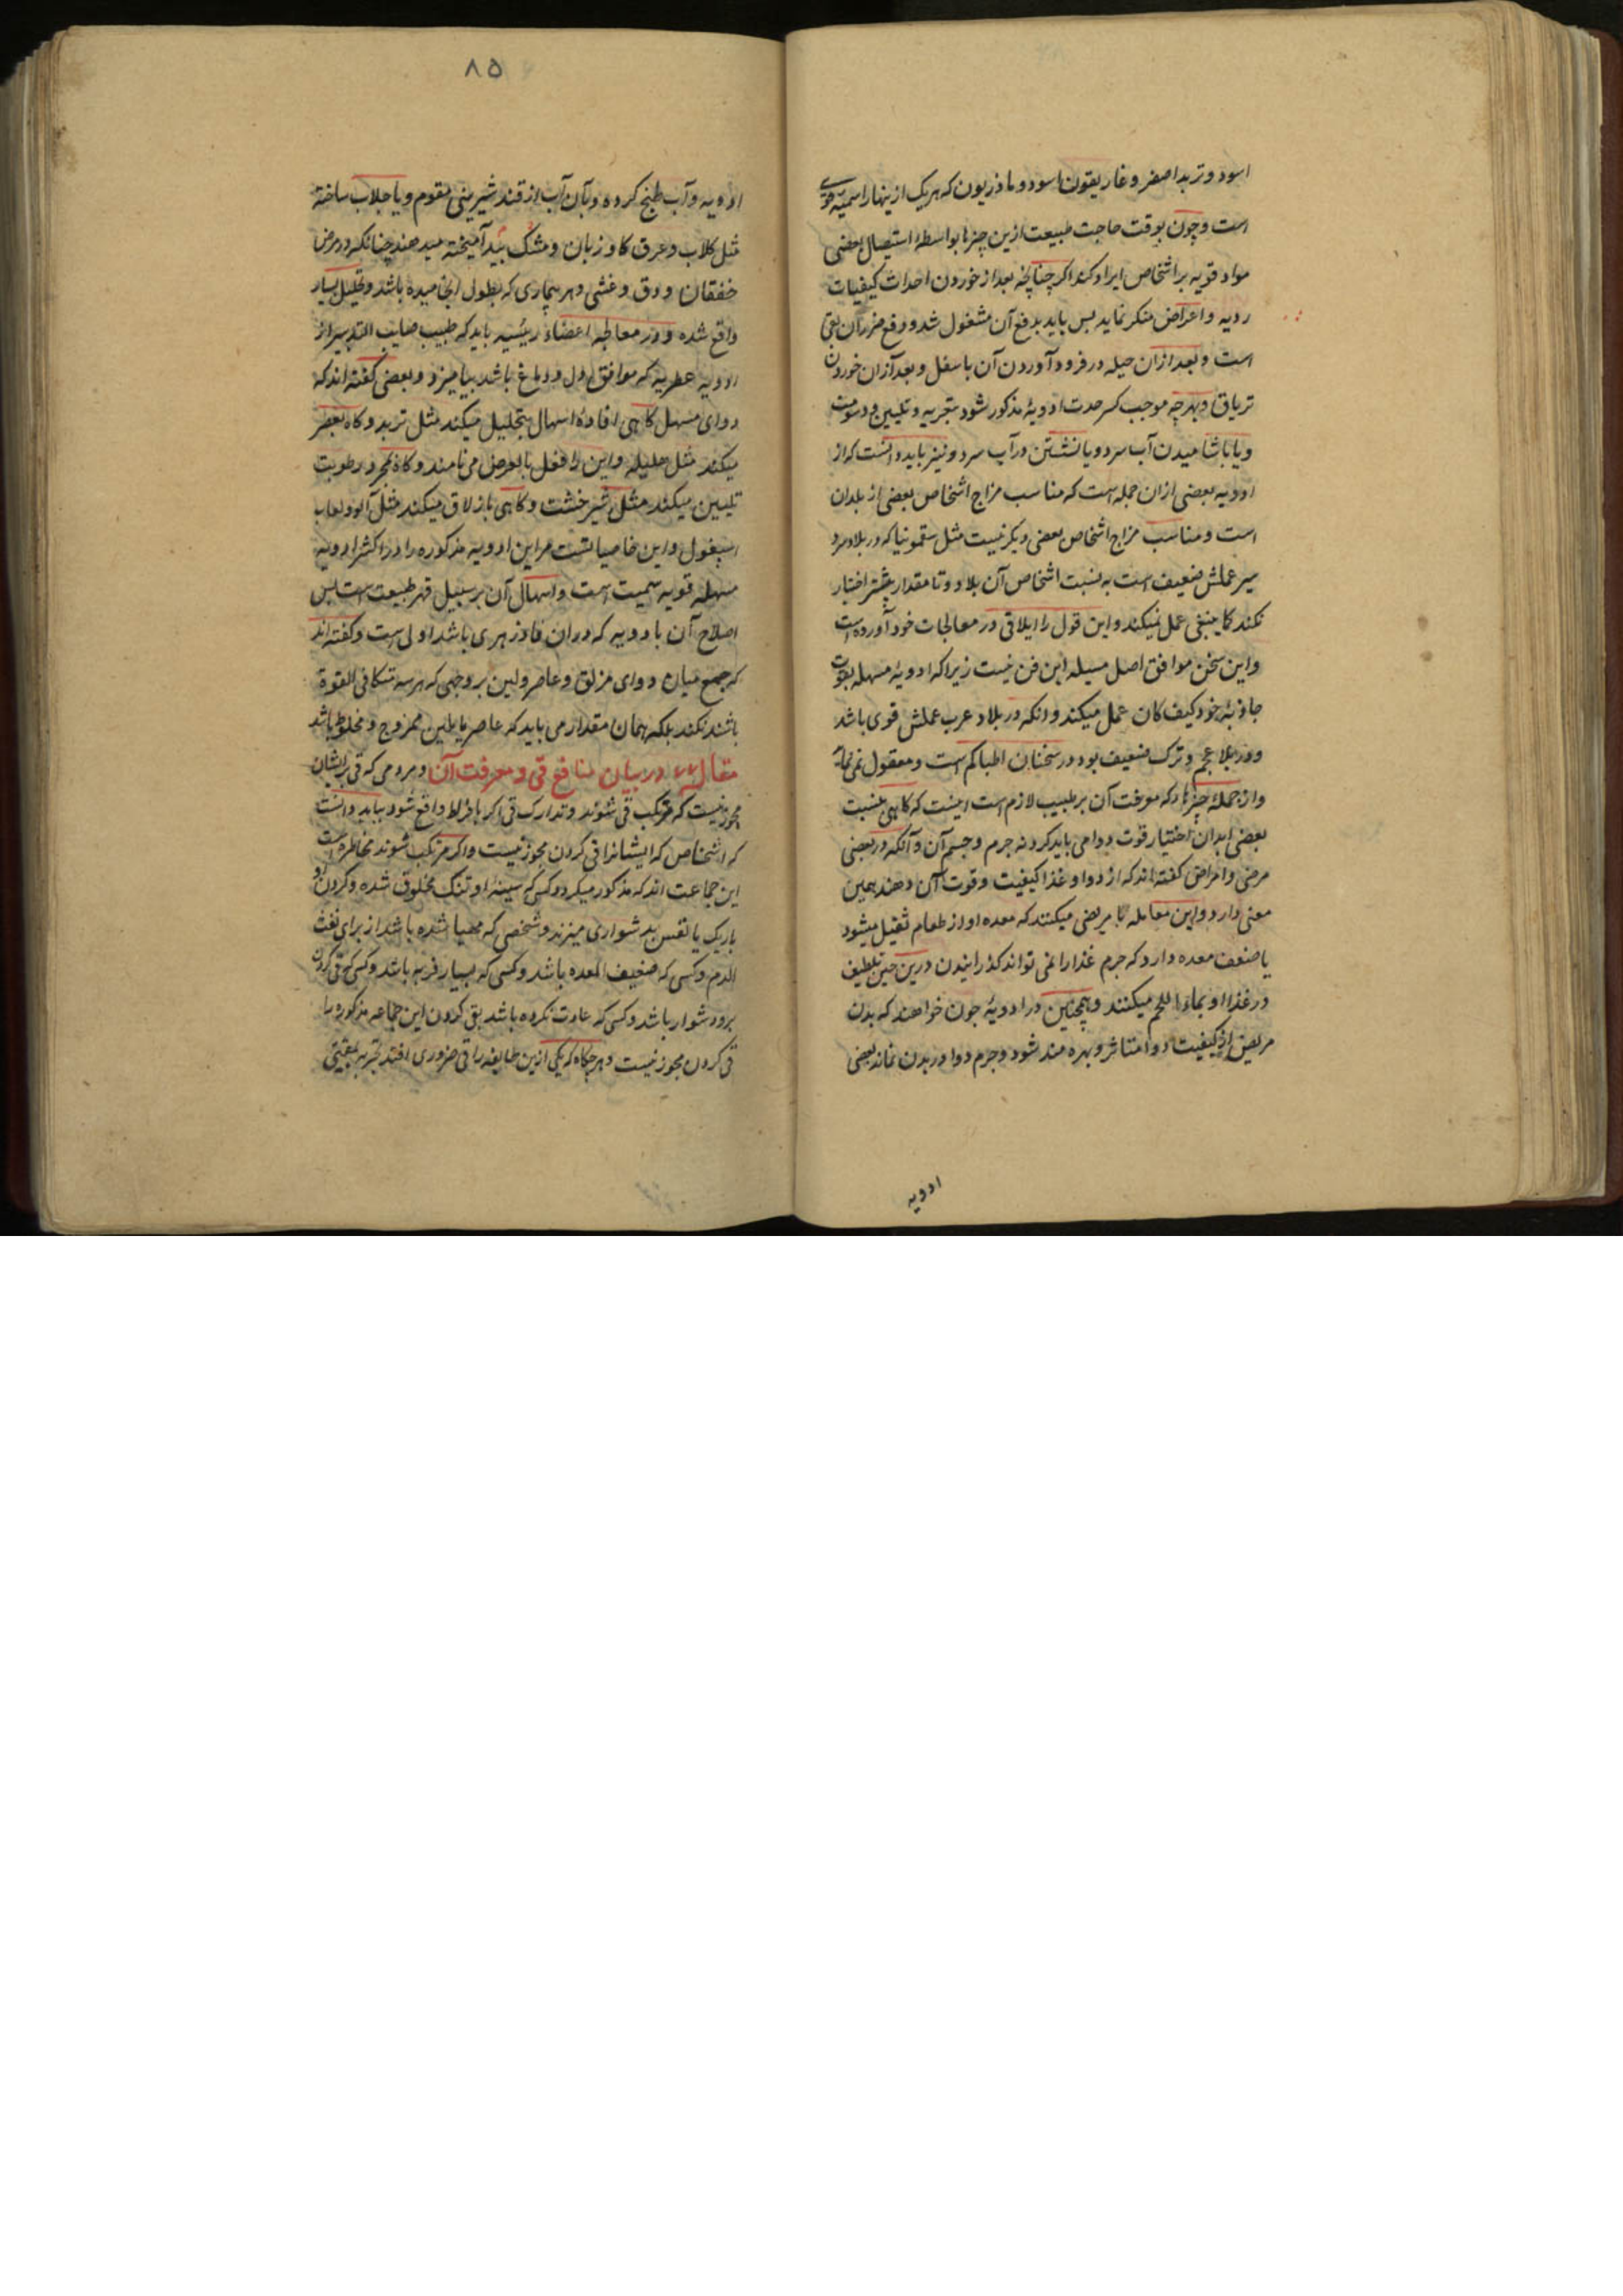 اسود و تربد اصفر و غاریقون اسود و ماذریون که هر یک از ینها را سمیه قوی
است و چون بوقت حاجت طبیعت ازین چیزها بواسطهٔ استیصال بعضی
مواد قویه بر اشخاص ایراد کند اگر چنانچه بعد از خوردن احداث کیفیات
ردیه و اعراض منکر نماید بس باید بدفع آن مشغول شد و دفع ضرر آن بقی
است و بعد ازان حیله در فرود آوردن آن باسفل و بعد ازان خوردن
تریاق و بهرچه موجب کسر حدت ادویهٔ مذکور شود بتجریه و تلیین و دسومت
و یا باشامیدن آب سرد و یا نشستن در آب سرد و نیز باید دانست که از
ادویه بعضی ازان جمله است که مناسب مزاج اشخاص بعضی از بلدان
است و مناسب مزاج اشخاص بعضی دیکر نیست مثل سقمونیا که در بلاد سرد
سیر عملش ضعیف است به نسبت اشخاص آن بلاد و تا مقدار بیشتر اختیار
نکند کما ینبغی عمل نمیکند و این قول را ایلاقی در معالجات خود آورده است
و این سخن موافق اصل مسیله این فن نیست زیرا که ادویهٔ مسهله بقوت
جاذبهٔ خود کیف کان عمل میکند و انکه در بلاد عرب عملش قوی باشد
و در بلاد عجم و ترک ضعیف بود در سخنان اطبا کم است و معقول نمی نماید
و از جملهٔ چیزها که معرفت آن بر طبیب لازم است اینست که کاهی بنسبت
بعضی ابدان اختیار قوت دوا می باید کرد نه جرم و جسم آن و آنکه در بعضی
مرضی و امراض کفته اند که از دوا و غذا کیفیت و قوت آن دهند همین
معنی دارد و این معامله با مریضی میکنند که معده او از طعام ثقیل میشود
یا ضعف معده دارد که جرم غذا را نمی تواند کذرانیدن درین حین تلطیف
در غذا او بماء اللحم میکنند و همچنین در ادویهٔ جون خواهند که بدن
مریض از کیفیت دوا متاثر و بهره مند شود و جرم دوا در بدن نماند بعضی
ادویه
٨٥
ادویه و آب طبخ کرده و بآن آب از قند شیرینی مقوم و یا جلاب ساخته
مثل کلاب و عرق کاو زبان و مشک بید آمیخته میدهند چنانکه در مرض
خفقان و دق و غشی و هر بیماری که بطول انجامیده باشد و تحلیل بسیار
واقع شده و در معالجه اعضاء رئیسه باید که طبیب صایب التدبیر از
ادویه عطریه که موافق دل و دماغ باشد بیامیزد و بعضی کفته اند که
دوای مسهل کاهی افادهٔ اسهال بتحلیل میکند مثل تربد و کاه بعصر
میکند مثل هلیله و این را فعل بالعرض می نامند و کاه بمجرد رطوبت
تلیین میکند مثل شیر خشت و کاهی بازلاق میکند مثل آلو و لعاب
اسپغول و این خاصیاتست مر این ادویه مذکوره را و در اکثر ادویه
مسهله قویه سمیت است و اسهال آن بر سبیل قهر طبیعت است بس
اصلاح آن بادویه که دران فادزهری باشد اولی است و کفته اند
که جمع میان دوای مزلق و عاصر و لین بر وجهی که هر سه متکافی القوة
باشند نکند بلکه همان مقدار می باید که عاصر یا ملین ممزوج و مخلوط باشد
مقال در بیان منافع قی و معرفت آن و مردمی که قی بر ایشان
مجوز نیست که مرتکب قی شوند و تدارک قی اکر بافراط واقع شود بباید دانست
که اشخاص که ایشانرا قی کردن مجوز نیست و اکر مرتکب شوند مخاطره است
این جماعت اند که مذکور میکردد کسی که سینهٔ او تنک مخلوق شده و کردن او
باریک یا نفس بدشواری میزند و شخصی که مهیا شده باشد از برای نفث
الدم و کسی که ضعیف المعده باشد و کسی که بسیار فربه باشد و کسی که قی کردن
برو دشوار باشد و کسی که عادت نکرده باشد بقی کردن این جماعه مذکوره را
قی کردن مجوز نیست و هرجکاه که یکی ازین طایفه را قی ضروری افتد